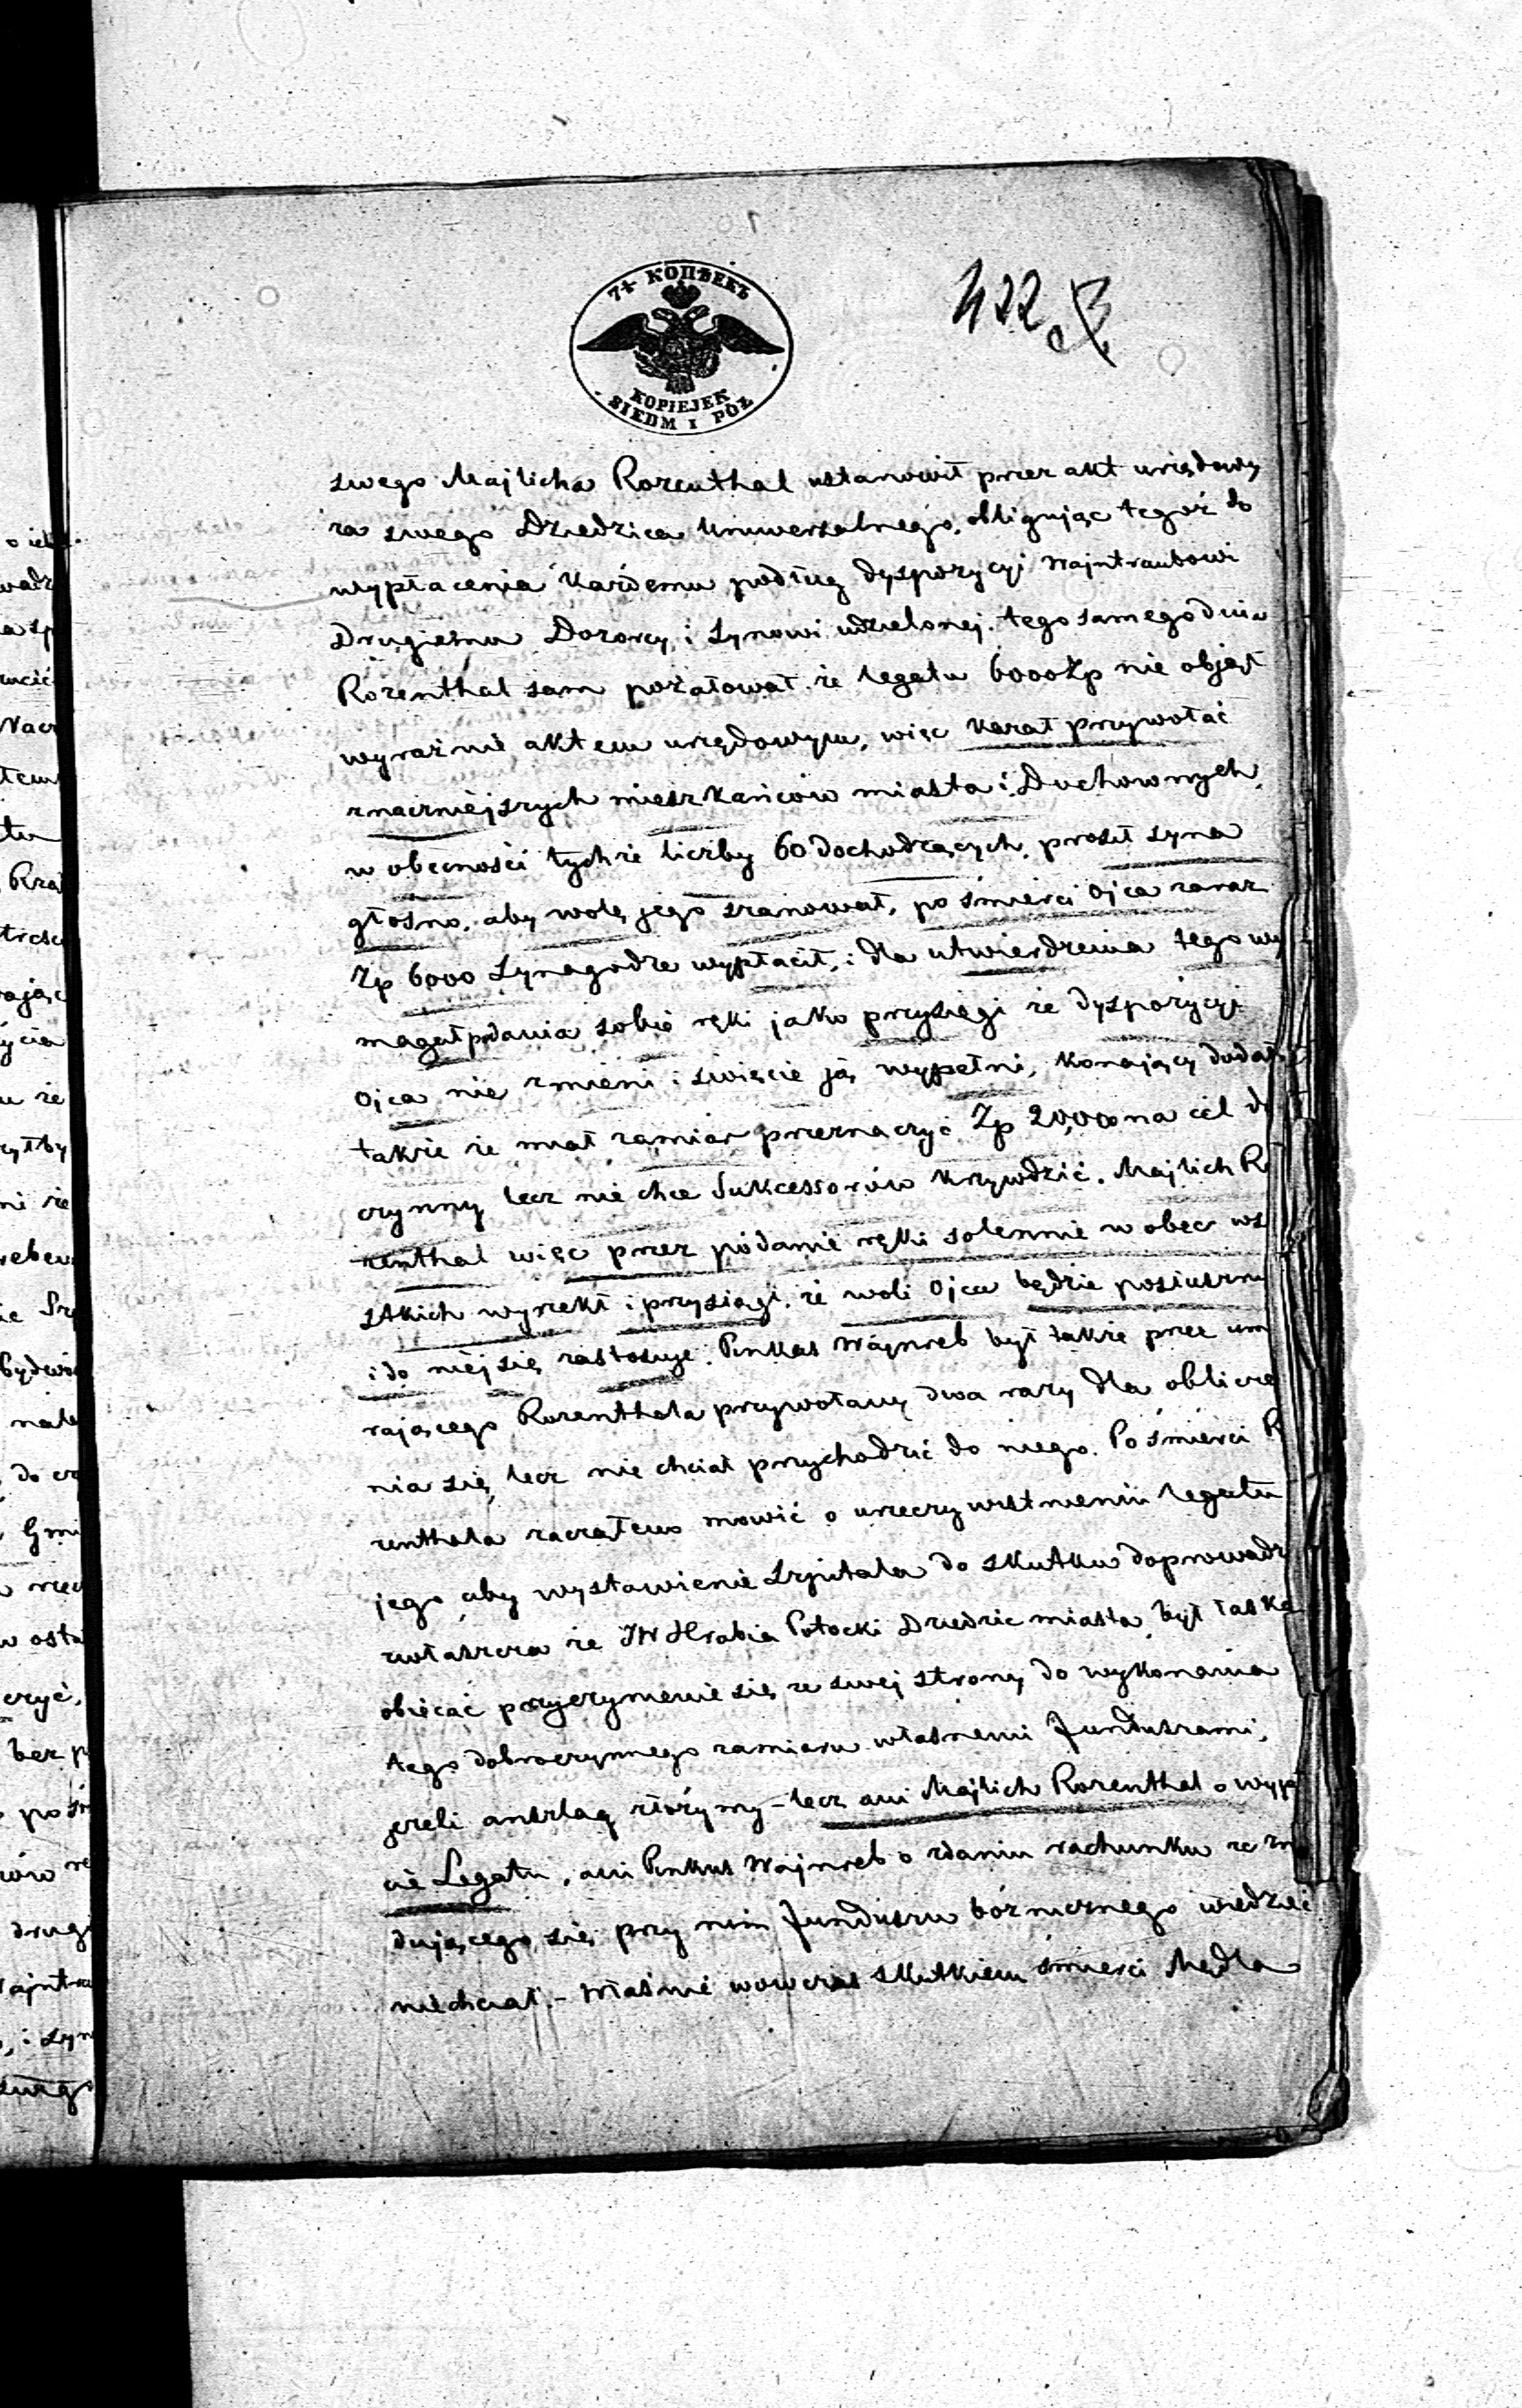 7½ КОПѢЕКЪ
KOPIEJEK
SIEDM I PÓŁ
422
swego Majlicha Rozenthal ustanowił przez akt urzędowy
za swego Dziedzica Uniwersalnego, obligując tegoż do
wypłacenia każdemu podług dyspozycyi Wajntraubowi
Drugiemu Dozorcy i Synowi udzielonej. tego samego dnia
Rozenthal sam pożałował że legatu 6000 Zp nie objął
wyraźnie aktem urzędowym, więc kazał przywołać
znaczniejszych mieszkańców miasta i Duchownych,
w obecności tychże liczby 60 dochodzących, prosił syna
głosno, aby wolę jego szanował, po śmierci Ojca zaraz
Zp 6000 Synagodze wypłacił, i dla utwierdzenia tego wy
magał podania sobie ręki jako przysięgi że dyspozycyi
Ojca nie zmieni i święcie ją wypełni, Konający dodał
także że miał zamiar przeznaczyć Zp 20,000 na cel do
czynny lecz nie chce Sukcessorów krzywdzić. Majlich R
zenthal więc przez podanie ręki solennie w obec wsz
stkich wyrzekł i przysiągł, że woli Ojca będzie posłuszny
i do niej się zastosuje. Pinkas Wajnreb był także przez um
rającego Rozenthala przywołany dwa razy dla oblicze
nia się, lecz nie chciał przychodzić do niego. Po śmierci R
zenthala zacząłem mowić o urzeczywistnieniu legatu
jego aby wystawienie Szpitala do skutku doprowadz
zwłaszcza że JW Hrabia Potocki Dziedzic miasta, był łaska
obiecać przyczynienie się ze swej strony do wykonania
tego dobroczynnego zamiaru własnemi Funduszami,
jeżeli anszlag złożymy - lecz ani Majlich Rozenthal o wypł
cie Legatu, ani Pinkus Wajnreb o zdaniu rachunku ze zn
dującego się przy nim Funduszu bóżnicznego wiedzieć
niechciał. - Właśnie wowczas skutkiem śmierci Mędla